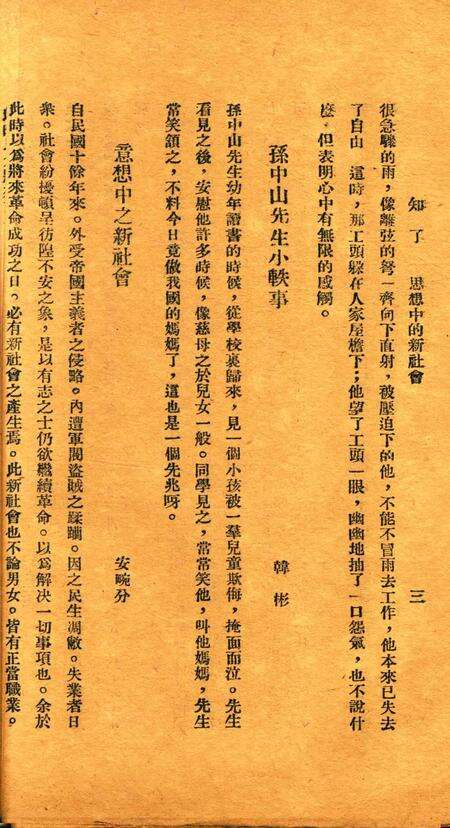 知了　思想中的新社會　三
很急驟的雨，像離弦的弩一齊向下直射，被壓迫下的他，不能不冒雨去工作，他本來已失去
了自由　這時，那工頭躲在人家屋檐下；他望了工頭一眼，幽幽地抽了一口怨氣，也不說什
麽，但表明心中有無限的感觸。
孫中山先生小軼事　韓彬
孫中山先生幼年讀書的時候，從學校裏歸來，見一個小孩被一羣兒童欺侮，掩面而泣。先生
看見之後，安慰他許多時候，像慈母之於兒女一般。同學見之，常常笑他，叫他媽媽，先生
常笑頷之，不料今日竟做我國的媽媽了，這也是一個先兆呀。
意想中之新社會　安畹分
自民國十餘年來。外受帝國主義者之侵略。內遭軍閥盜賊之蹂躪。因之民生凋敝。失業者日
衆。社會紛擾頓呈彷徨不安之象，是以有志之士仍欲繼續革命。以爲解决一切事項也。余於
此時以爲將來革命成功之日。必有新社會之產生焉。此新社會也不論男女。皆有正當職業。